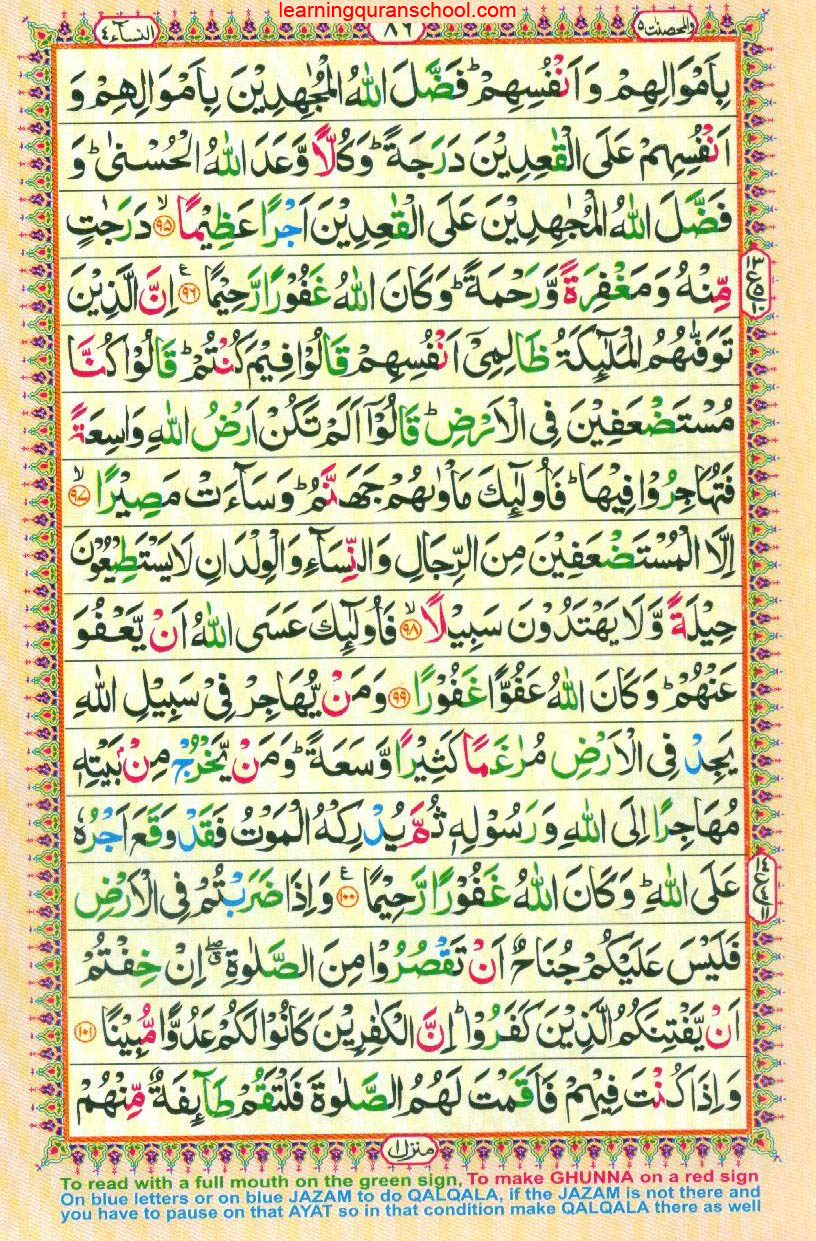 learningquranschool.com
النسآء٤
٨٦
والمحصنت٥
بِاَمْوَالِهِمْ وَاَنْفُسِهِمْ ؕ فَضَّلَ اللّٰهُ الْمُجٰهِدِيْنَ بِاَمْوَالِهِمْ وَ
اَنْفُسِهِمْ عَلَى الْقٰعِدِيْنَ دَرَجَةً ؕ وَكُلًّا وَّعَدَ اللّٰهُ الْحُسْنٰى ؕ وَ
فَضَّلَ اللّٰهُ الْمُجٰهِدِيْنَ عَلَى الْقٰعِدِيْنَ اَجْرًا عَظِيْمًا ۙ‏﴿۹۵﴾ دَرَجٰتٍ
مِّنْهُ وَمَغْفِرَةً وَّرَحْمَةً ؕ وَكَانَ اللّٰهُ غَفُوْرًا رَّحِيْمًا ﴿۹۶﴾ اِنَّ الَّذِيْنَ
تَوَفّٰىهُمُ الْمَلٰٓئِكَةُ ظَالِمِىْۤ اَنْفُسِهِمْ قَالُوْا فِيْمَ كُنْتُمْ ؕ قَالُوْا كُنَّا
مُسْتَضْعَفِيْنَ فِى الْاَرْضِ ؕ قَالُوْۤا اَلَمْ تَكُنْ اَرْضُ اللّٰهِ وَاسِعَةً
فَتُهَاجِرُوْا فِيْهَا ؕ فَاُولٰٓئِكَ مَاْوٰىهُمْ جَهَنَّمُ ؕ وَسَآءَتْ مَصِيْرًا ۙ‏﴿۹۷﴾
اِلَّا الْمُسْتَضْعَفِيْنَ مِنَ الرِّجَالِ وَالنِّسَآءِ وَالْوِلْدَانِ لَا يَسْتَطِيْعُوْنَ
حِيْلَةً وَّلَا يَهْتَدُوْنَ سَبِيْلًا ۙ‏﴿۹۸﴾ فَاُولٰٓئِكَ عَسَى اللّٰهُ اَنْ يَّعْفُوَ
عَنْهُمْ ؕ وَكَانَ اللّٰهُ عَفُوًّا غَفُوْرًا ﴿۹۹﴾ وَمَنْ يُّهَاجِرْ فِىْ سَبِيْلِ اللّٰهِ
يَجِدْ فِى الْاَرْضِ مُرٰغَمًا كَثِيْرًا وَّسَعَةً ؕ وَمَنْ يَّخْرُجْ مِنْۢ بَيْتِهٖ
مُهَاجِرًا اِلَى اللّٰهِ وَرَسُوْلِهٖ ثُمَّ يُدْرِكْهُ الْمَوْتُ فَقَدْ وَقَعَ اَجْرُهٗ
عَلَى اللّٰهِ ؕ وَكَانَ اللّٰهُ غَفُوْرًا رَّحِيْمًا ﴿۱۰۰﴾ وَاِذَا ضَرَبْتُمْ فِى الْاَرْضِ
فَلَيْسَ عَلَيْكُمْ جُنَاحٌ اَنْ تَقْصُرُوْا مِنَ الصَّلٰوةِ ۖ اِنْ خِفْتُمْ
اَنْ يَّفْتِنَكُمُ الَّذِيْنَ كَفَرُوْا ؕ اِنَّ الْكٰفِرِيْنَ كَانُوْا لَكُمْ عَدُوًّا مُّبِيْنًا ﴿۱۰۱﴾
وَاِذَا كُنْتَ فِيْهِمْ فَاَقَمْتَ لَهُمُ الصَّلٰوةَ فَلْتَقُمْ طَآئِفَةٌ مِّنْهُمْ
منزل١
To read with a full mouth on the green sign, To make GHUNNA on a red sign
On blue letters or on blue JAZAM to do QALQALA, if the JAZAM is not there and
you have to pause on that AYAT so in that condition make QALQALA there as well